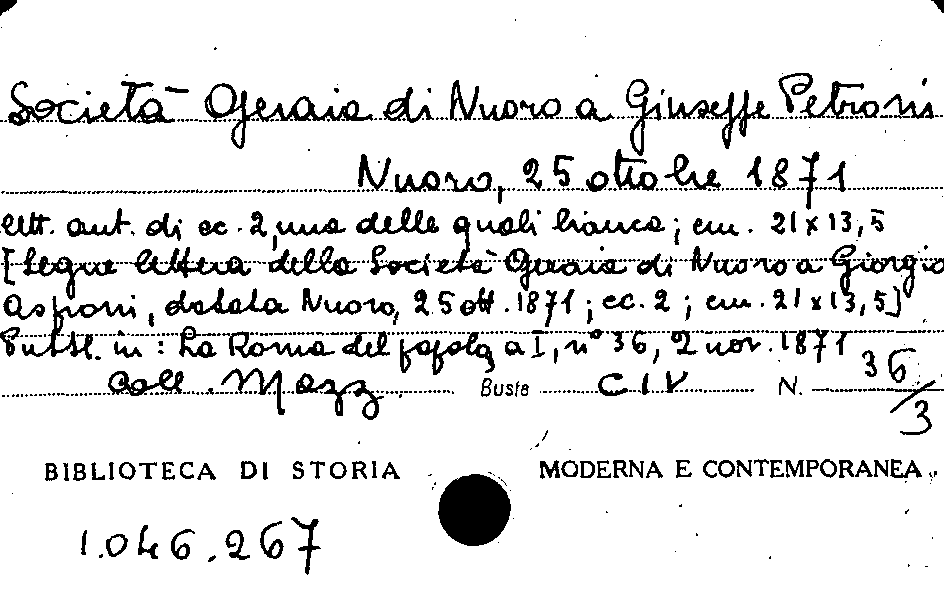 Società Operaia di Nuoro a Giuseppe Petroni
Nuoro, 25 ottobre 1871
lett. aut. di cc. 2, una delle quali bianca; cm. 21 x 13,5
[Segue lettera della Società Operaia di Nuoro a Giorgio
Asproni, datata Nuoro, 25 ott. 1871; cc. 2; cm. 21 x 13,5]
Pubbl. in: La Roma del popolo, a I, n° 36, 2 nov. 1871
Coll. Mazz Busta CIV N. 36/3
BIBLIOTECA DI STORIA MODERNA E CONTEMPORANEA
1.046.267